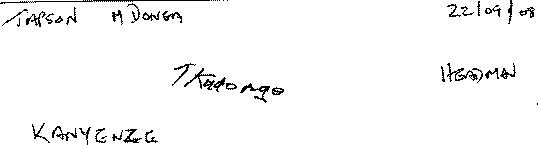 JAPSON MDONGA 22/09/08
TKadongo HEADMAN
KANYENZE